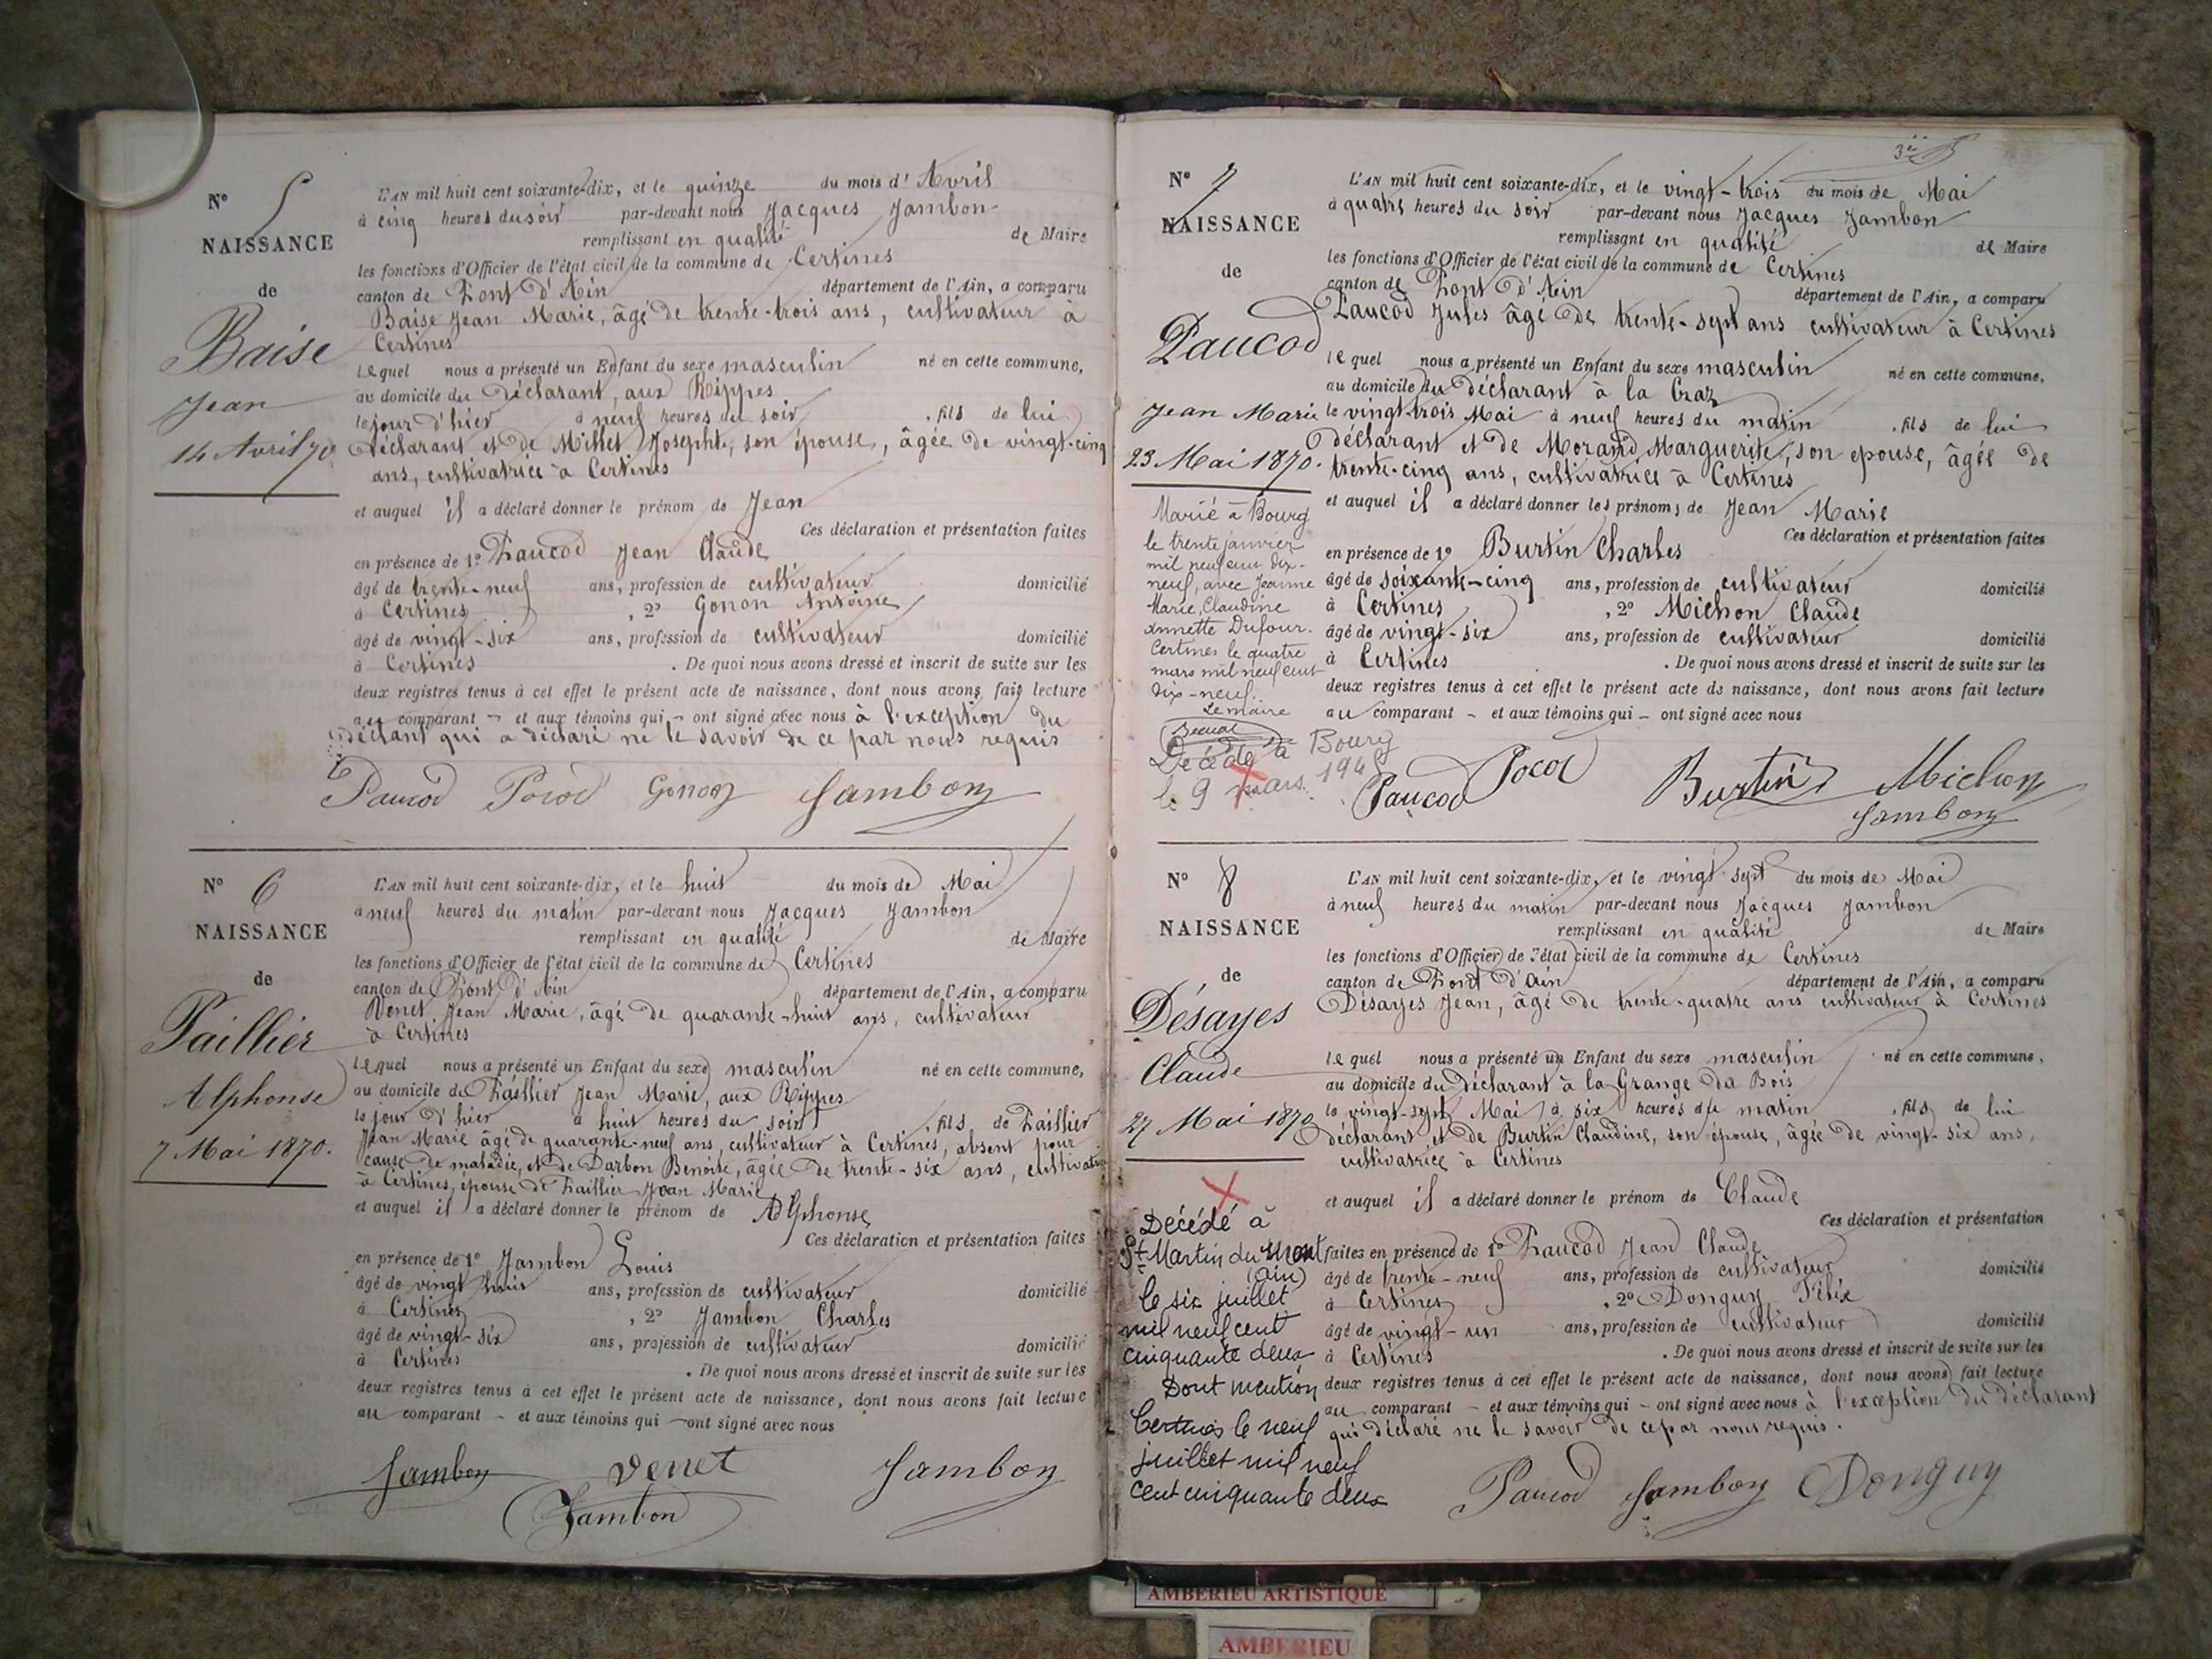 N° 5
NAISSANCE
de
Baise
Jean
14 Avril 70
L'AN mil huit cent soixante-dix, et le quinze du mois d'Avril
à cinq heures du soir par-devant nous Jacques Jambon
remplissant en qualité de Maire
les fonctions d'Officier de l'état civil de la commune de Certines
canton de Pont d'Ain département de l'Ain, a comparu
Baise Jean Marie, âgé de trente-trois ans, cultivateur à
Certines
lequel nous a présenté un Enfant du sexe masculin né en cette commune,
au domicile du déclarant, aux Rippes
le jour d'hier à neuf heures du soir, fils de lui
déclarant et de Millet Josephte, son épouse, âgée de vingt-cinq
ans, cultivatrice à Certines
et auquel il a déclaré donner le prénom de Jean
Ces déclaration et présentation faites
en présence de 1° Paucod Jean Claude
âgé de trente-neuf ans, profession de cultivateur domicilié
à Certines, 2° Gonon Antoine
âgé de vingt-six ans, profession de cultivateur domicilié
à Certines. De quoi nous avons dressé et inscrit de suite sur les
deux registres tenus à cet effet le présent acte de naissance, dont nous avons fait lecture
au comparant - et aux témoins qui - ont signé avec nous à l'exception du
déclant qui a déclaré ne le savoir de ce par nous requis
Paucod Gonon Jambon
N° 6
NAISSANCE
de
Paillier
Alphonse
7 Mai 1870.
L'AN mil huit cent soixante-dix, et le huit du mois de Mai
à neuf heures du matin par-devant nous Jacques Jambon
remplissant en qualité de Maire
les fonctions d'Officier de l'état civil de la commune de Certines
canton de Pont d'Ain département de l'Ain, a comparu
Venet Jean Marie, âgé de quarante-huit ans, cultivateur
à Certines
lequel nous a présenté un Enfant du sexe masculin né en cette commune,
au domicile de Paillier Jean Marie, aux Rippes
le jour d'hier à huit heures du soir, fils de Paillier
Jean Marie âgé de quarante-neuf ans, cultivateur à Certines, absent pour
cause de maladie, et de Darbon Benoite, âgée de trente-six ans,
à Certines, épouse de Paillier Jean Marie
et auquel il a déclaré donner le prénom de Alphonse
Ces déclaration et présentation faites
en présence de 1° Jambon Louis
âgé de vingt huit ans, profession de cultivateur domicilié
à Certines, 2° Jambon Charles
âgé de vingt-six ans, profession de cultivateur domicilié
à Certines. De quoi nous avons dressé et inscrit de suite sur les
deux registres tenus à cet effet le présent acte de naissance, dont nous avons fait lecture
au comparant - et aux témoins qui - ont signé avec nous
Jambon Venet Jambon
Jambon
N° 7
NAISSANCE
de
Paucod
Jean Marie
23 Mai 1870.
Marié à Bourg
le trente janvier
mil neuf cent dix-
neuf, avec Jeanne
Marie, Claudine
Annette Dufour.
Certines le quatre
mars mil neuf cent
dix-neuf.
Le maire
Décédé à Bourg
le 9 mars
L'AN mil huit cent soixante-dix, et le vingt-trois du mois de Mai
à quatre heures du soir par-devant nous Jacques Jambon
remplissant en qualité de Maire
les fonctions d'Officier de l'état civil de la commune de Certines
canton de Pont d'Ain département de l'Ain, a comparu
Paucod Jules âgé de trente-sept ans cultivateur à Certines
lequel nous a présenté un Enfant du sexe masculin né en cette commune,
au domicile du déclarant à la Craz
le vingt-trois Mai à neuf heures du matin, fils de lui
déclarant et de Morand Marguerite, son epouse, âgée de
trente-cinq ans, cultivatrice à Certines
et auquel il a déclaré donner les prénoms de Jean Marie
Ces déclaration et présentation faites
en présence de 1° Burtin Charles
âgé de soixante-cinq ans, profession de cultivateur domicilié
à Certines, 2° Michon Claude
âgé de vingt-six ans, profession de cultivateur domicilié
à Certines. De quoi nous avons dressé et inscrit de suite sur les
deux registres tenus à cet effet le présent acte de naissance, dont nous avons fait lecture
au comparant - et aux témoins qui - ont signé avec nous
Paucod Burtin Michon
Jambon
N° 8
NAISSANCE
de
Désayes
Claude
27 Mai 1870
Décédé à
St Martin du Mont
(Ain)
le six juillet
mil neuf cent
cinquante deux
Dont mention
Certines le neuf
juillet mil neuf
cent cinquante deux
L'AN mil huit cent soixante-dix, et le vingt-sept du mois de Mai
à neuf heures du matin par-devant nous Jacques Jambon
remplissant en qualité de Maire
les fonctions d'Officier de l'état civil de la commune de Certines
canton de Pont d'Ain département de l'Ain, a comparu
Désayes Jean, âgé de trente-quatre ans cultivateur à Certines
lequel nous a présenté un Enfant du sexe masculin né en cette commune,
au domicile du déclarant à la Grange du Bois
le vingt-sept Mai à six heures du matin, fils de lui
déclarant et de Burtin Claudine, son épouse, âgée de vingt-six ans,
cultivatrice à Certines
et auquel il a déclaré donner le prénom de Claude
Ces déclaration et présentation
faites en présence de 1° Paucod Jean Claude
âgé de trente-neuf ans, profession de cultivateur domicilié
à Certines, 2° Donguy Félix
âgé de vingt-un ans, profession de cultivateur domicilié
à Certines. De quoi nous avons dressé et inscrit de suite sur les
deux registres tenus à cet effet le présent acte de naissance, dont nous avons fait lecture
au comparant - et aux témoins qui - ont signé avec nous à l'exception du déclarant
qui déclaré ne le savoir de ce par nous requis.
Paucod Jambon Donguy
AMBERIEU ARTISTIQUE
AMBERIEU